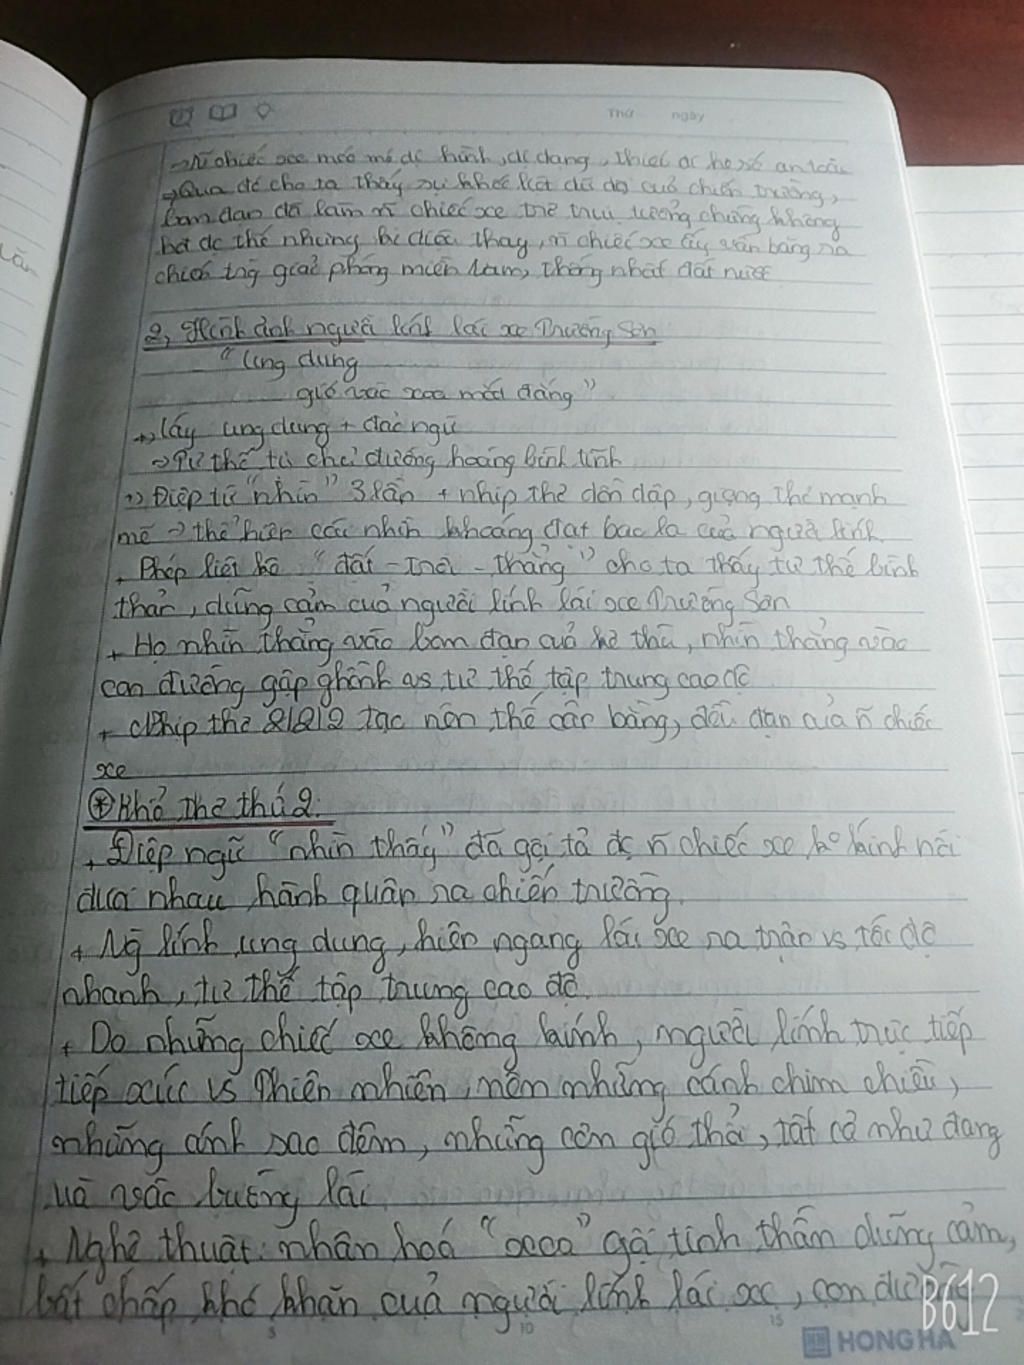 Thứ ngày
→ ñ chiếc xe méo mó dị hình, dị dạng, thiếu đi hệ số an toàn
→ Qua đó cho ta thấy sự khốc liệt dữ dội cuả chiến trường,
bom đạn đã làm ñ chiếc xe trơ trụi tưởng chừng không
thế nhưng kì diệu thay, ñ chiếc xe ấy vẫn băng ra
chiến trg giải phóng miền Nam, thống nhất đất nước
2, Hình ảnh người lính lái xe Trường Sơn
"Ung dung
gió vào xoa mắt đắng"
+, láy ung dung + đảo ngữ
→ Tư thế từ chủ đường hoàng bình tĩnh
+, Điệp từ "nhìn" 3 lần + nhịp thơ dồn dập, giọng thơ mạnh
mẽ → thể hiện cái nhìn khoáng đạt bao la cuả người lính.
+ Phép liệt kê "đất - trời - thẳng" cho ta thấy tư thế bình
thản, dũng cảm cuả người lính lái xe Trường Sơn
+ Họ nhìn thẳng vào bom đạn cuả kẻ thù, nhìn thẳng vào
con đường gập ghềnh vs tư thế tập trung cao độ
+ Nhịp thơ 2/2/2 tạc nên thế cân bằng, đều đặn của ñ chiếc
xe
* Khổ thơ thứ 2:
+ Điệp ngữ "nhìn thấy" đã gợi tả đc ñ chiếc xe ko kính nối
đuôi nhau hành quân ra chiến trường.
+ Ng lính ung dung, hiên ngang lái xe ra trận vs tốc độ
nhanh, tư thế tập trung cao độ.
+ Do những chiếc xe không kính, người lính trực tiếp
tiếp xúc vs Thiên nhiên, nên những cánh chim chiều,
những ánh sao đêm, những cơn gió thổi, tất cả như đang
uà vào buồng lái
+ Nghệ thuật: nhân hoá "xoa" gợi tinh thần dũng cảm,
bất chấp khó khăn cuả người lính lái xe, con đường
5 10 15
HONG HA
B612